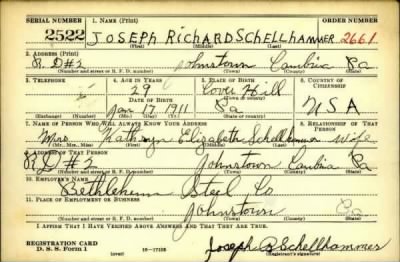 SERIAL NUMBER 1. NAME (Print) ORDER NUMBER
2522 JOSEPH RICHARD SCHELLHAMMER 2661
(First) (Middle) (Last)
2. ADDRESS (Print)
R.D#2 Johnstown Cambria Pa
(Number and street or R. F. D. number) (Town) (County) (State)
3. TELEPHONE 4. AGE IN YEARS 5. PLACE OF BIRTH 6. COUNTRY OF CITIZENSHIP
29 Cover Hill
DATE OF BIRTH
Jan. 17 1911 Pa USA
(Exchange) (Number) (Mo.) (Day) (Yr.) (State or country)
7. NAME OF PERSON WHO WILL ALWAYS KNOW YOUR ADDRESS 8. RELATIONSHIP OF THAT PERSON
Mrs. Kathryn Elizabeth Schellhammer wife
(Mr., Mrs., Miss) (First) (Middle) (Last)
9. ADDRESS OF THAT PERSON
R.D#2 Johnstown Cambria Pa
(Number and street or R. F. D. number) (Town) (County) (State)
10. EMPLOYER'S NAME
Bethlehem Steel Co
11. PLACE OF EMPLOYMENT OR BUSINESS
Johnstown Pa
(Number and street or R. F. D. number) (Town) (County) (State)
I AFFIRM THAT I HAVE VERIFIED ABOVE ANSWERS AND THAT THEY ARE TRUE.
REGISTRATION CARD
D. S. S. Form 1 (over) 16—17105
Joseph R Schellhammer
(Registrant's signature)